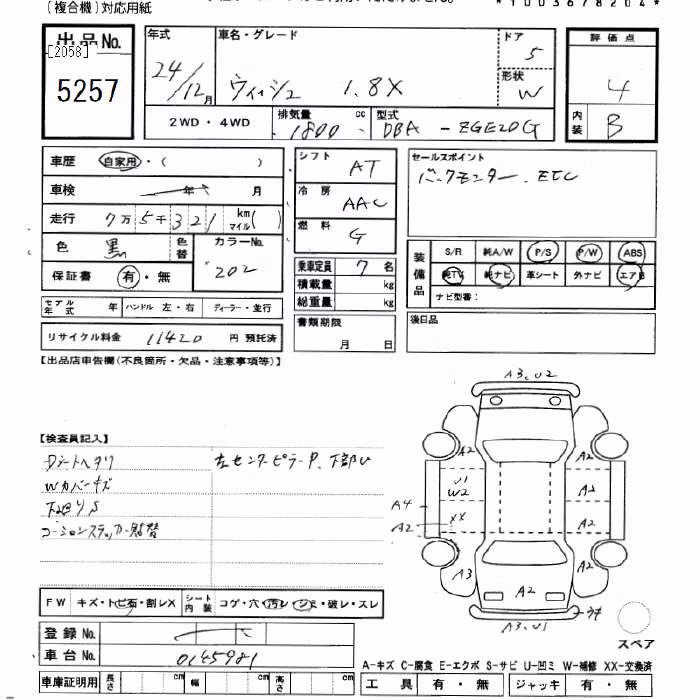 (複合機)対応用紙
*1003678204*
出品No. [2058] 5257
年式 24/12月
車名・グレード ウィッシュ 1.8X
ドア 5
形状 W
評価点 4
内装 B
2WD・4WD
排気量 1800 cc
型式 DBA-ZGE20G
車歴 自家用・( )
車検 年 月
走行 7万5千321 km マイル( )
色 黒 色替
カラーNo. 202
保証書 有・無
シフト AT
冷房 AAC
燃料 G
乗車定員 7名
積載量 kg
総重量 kg
セールスポイント
バックモニター、ETC
装備品 S/R 純A/W P/S P/W ABS
純TV 純ナビ 革シート 外ナビ エアB
ナビ型番:
モデル年式 年 ハンドル 左・右 ディーラー・並行
書類期限 月 日
後日品
リサイクル料金 11420 円 預託済
【出品店申告欄(不良箇所・欠品・注意事項等)】
A3、U2
【検査員記入】
Dシートヘタリ 左センターピラーP、下部U
Wカバーキズ
下廻りS
コーションステッカー貼替
A2 A2
U1 W2 A2
A4 A2 XX A2
A3 A2 A2
A3、U1
スペア
FW キズ・トビ石・割レX シート内装 コゲ・穴・汚レ・シミ・破レ・スレ
登録No.
車台No. 0145981
A-キズ C-腐食 E-エクボ S-サビ U-凹ミ W-補修 XX-交換済
車庫証明用 長さ cm 幅 cm 高さ cm
工具 有・無 ジャッキ 有・無